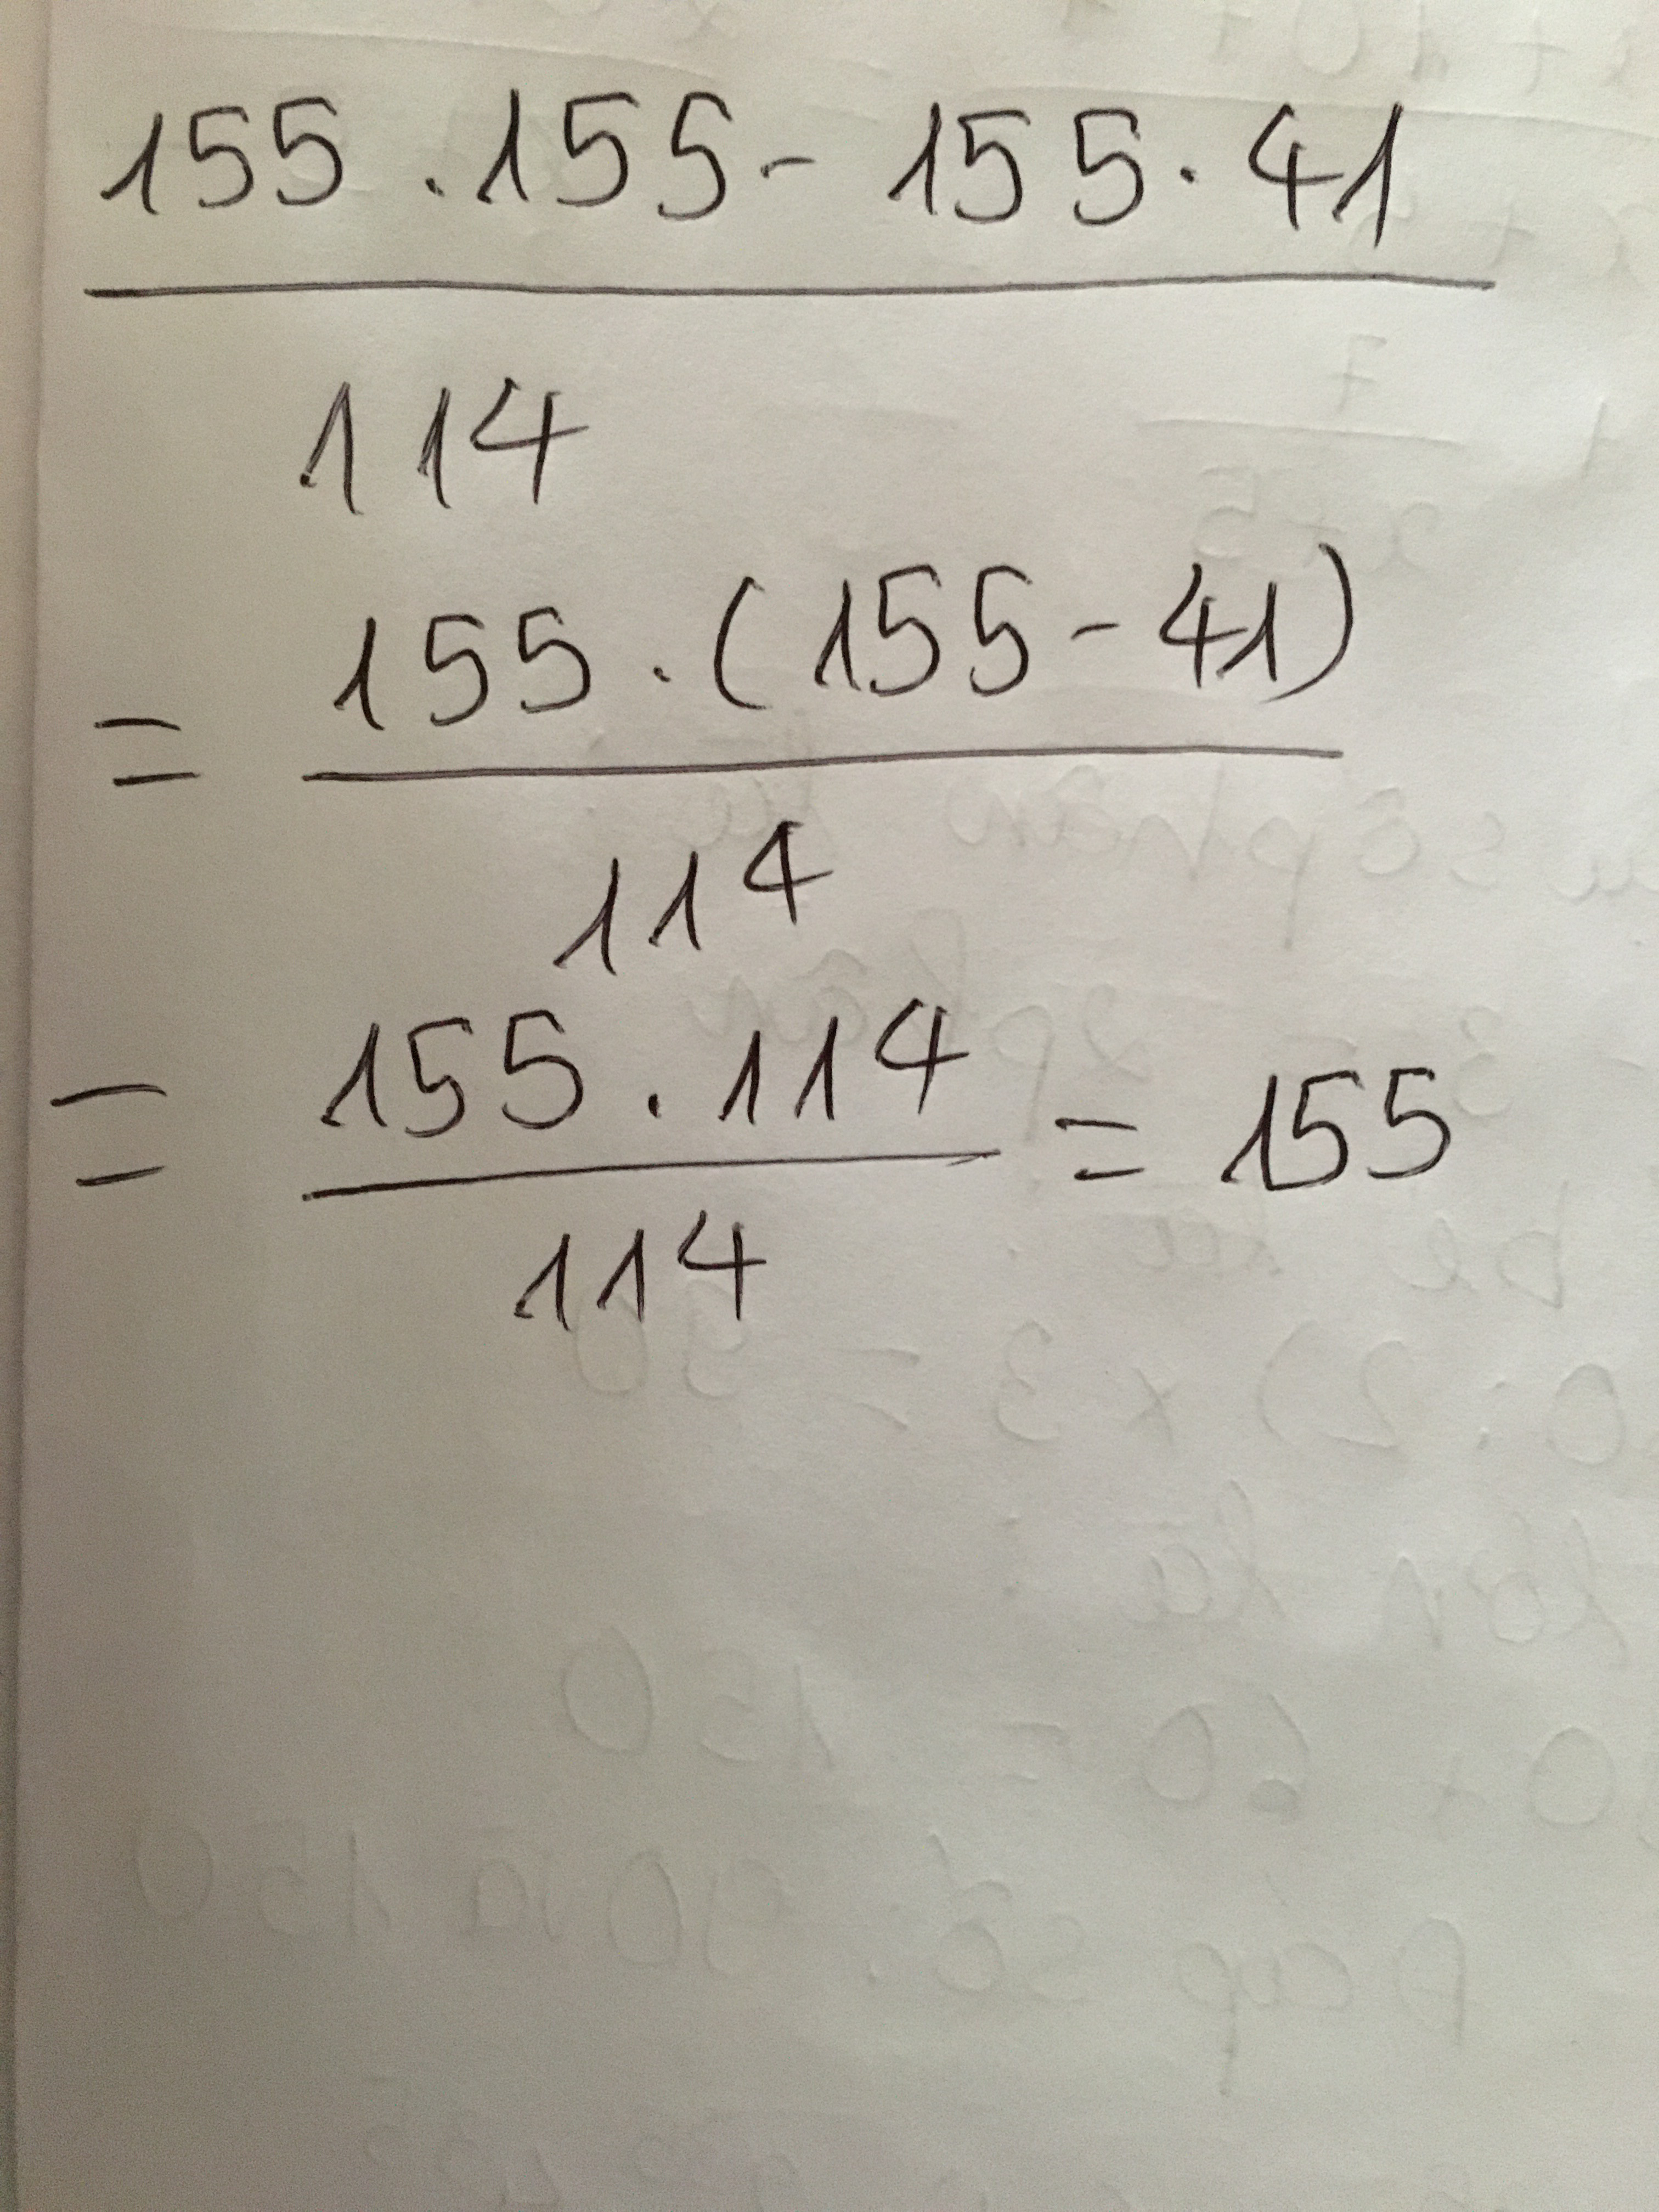 155 . 155 - 155 . 41
114
155 . (155 - 41)
=
114
= 155 . 114 = 155
114